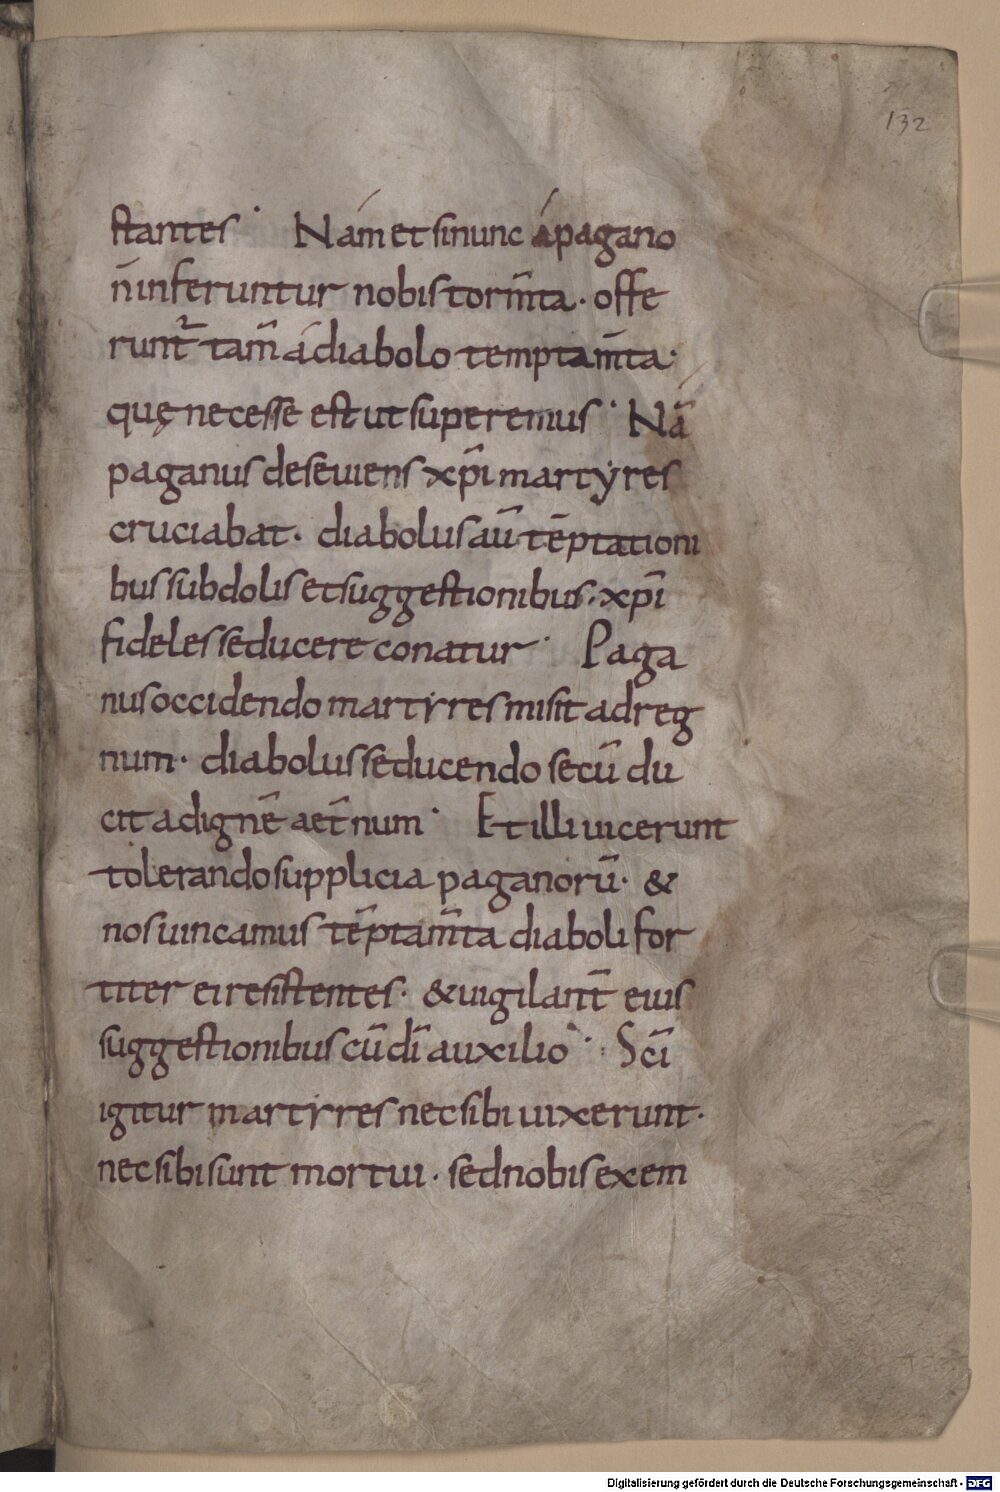 132
stantes · Nám et si nunc á pagano
n̄ inferuntur nobis torm̄ta · offe
runt᷑ tam̄ á diabolo temptam̄ta ·
quę necesse est ut superemus · Nā
paganus deseuiens xp̄i martyres
cruciabat · diabolus aū tēptationi
bus subdolis et suggestionibus · xp̄i
fideles seducere conatur · Paga
nus occidendo martyres misit ad reg
num · diabolus seducendo secū du
cit ad ignē aet̄num · Et illi uicerunt
tolerando supplicia paganorū · &
nos uincamus tēptam̄ta diaboli for
titer ei resistentes · & uigilant̄ eius
suggestionibus cū dī auxilio · Scī
igitur martyres nec sibi uixerunt ·
nec sibi sunt mortui · sed nobis exem
Digitalisierung gefördert durch die Deutsche Forschungsgemeinschaft - DFG